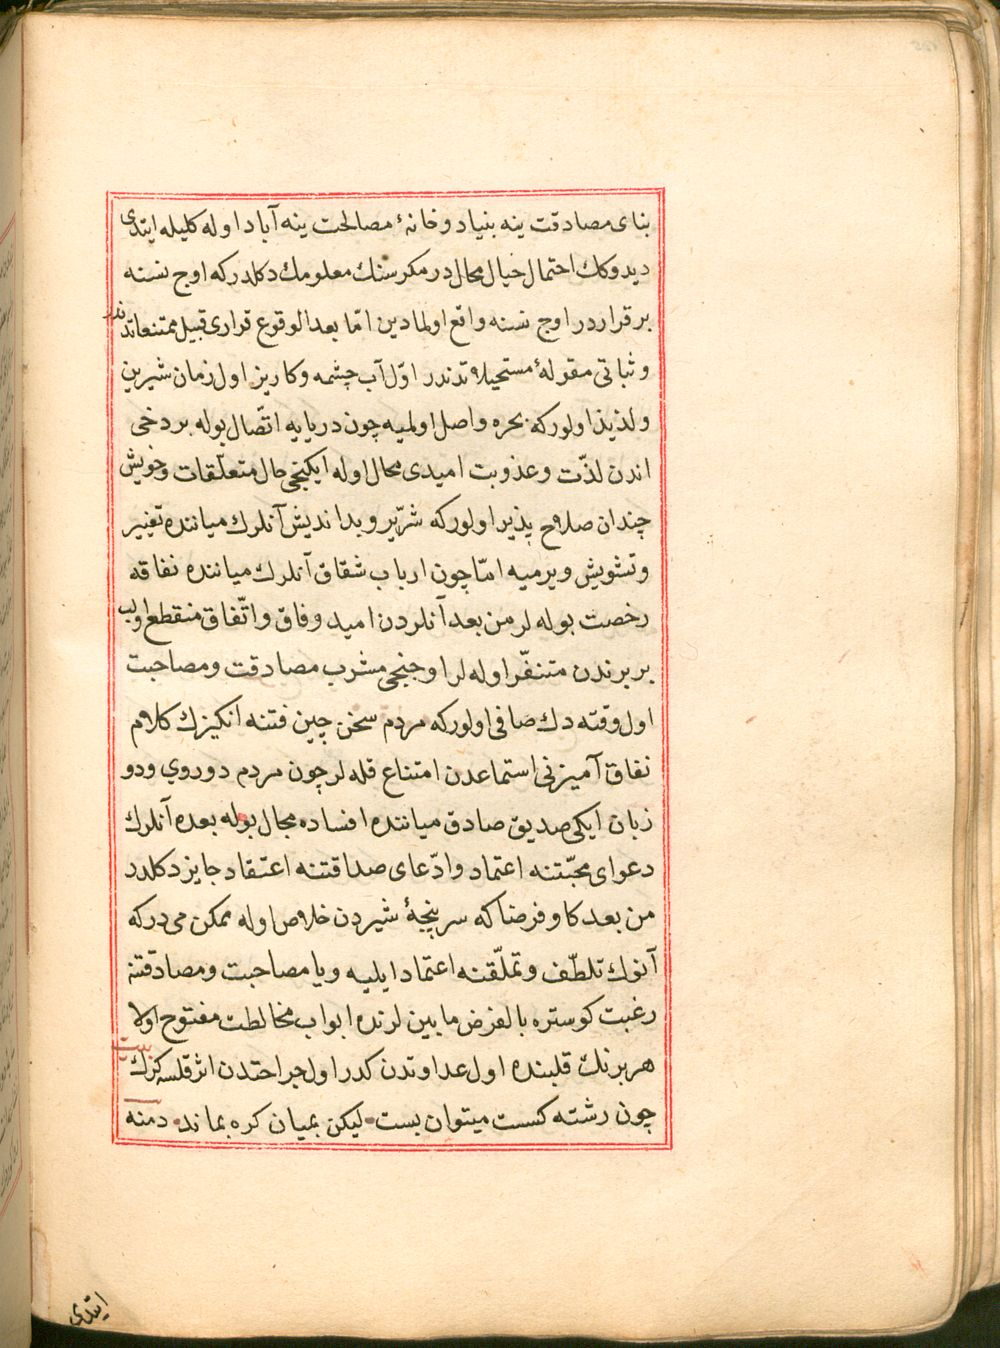 بنای مصادقت ینه بنیاد و خانۀ مصالحت ینه آباد اوله کلیله ایتدی
دیدوکك احتمال خیال محال در مکر سنك معلومك دکلدر که اوچ نسنه
بر قرار در اوچ نسنه واقع اولمادین امّا بعد الوقوع قراری قبیل ممتنعاتدندر
و ثباتی مقولۀ مستحیلاتدندر اوّل آب چشمه و کاریز اول زمان شیرین
و لذیذ اولور که بحره واصل اولمیه چون دریایه اتّصال بوله بر دخی
اندن لذّت و عذوبت امیدی محال اوله ایکنجی حال متعلّقات و خویش
چندان صلاح پذیر اولور که شرّیر و بداندیش آنلرك میاننده تغییر
و تشویش ویرمیه امّا چون ارباب شقاق آنلرك میاننده نفاقه
رخصت بوله لر من بعد آنلردن امید وفاق و اتّفاق منقطع اولب
بربرندن متنفّر اوله لر اوچنجی مشرب مصادقت و مصاحبت
اول وقته دك صافی اولور که مردم سخن چین فتنه انکیزك کلام
نفاق آمیزنی استماعدن امتناع قله لر چون مردم دوروی و دو
زبان ایکی صدیق صادق میاننده افساده مجال بوله بعده آنلرك
دعوای محبّتنه اعتماد و ادّعای صداقتنه اعتقاد جایز دکلدر
من بعد کاو فرضا که سرپنجۀ شیردن خلاص اوله ممکن می در که
آنوك تلطّف و تملّقنه اعتماد ایلیه و یا مصاحبت و مصادقتنه
رغبت کوستره بالفرض مابین لرنده ابواب مخالطت مفتوح اولا
هر برنك قلبنده اول عداوتدن کدر اول جراحتدن اثر قلسه کرك
بیت
چون رشته کسست میتوان بست لیکن بمیان کره بماند دمنه
ایتدی